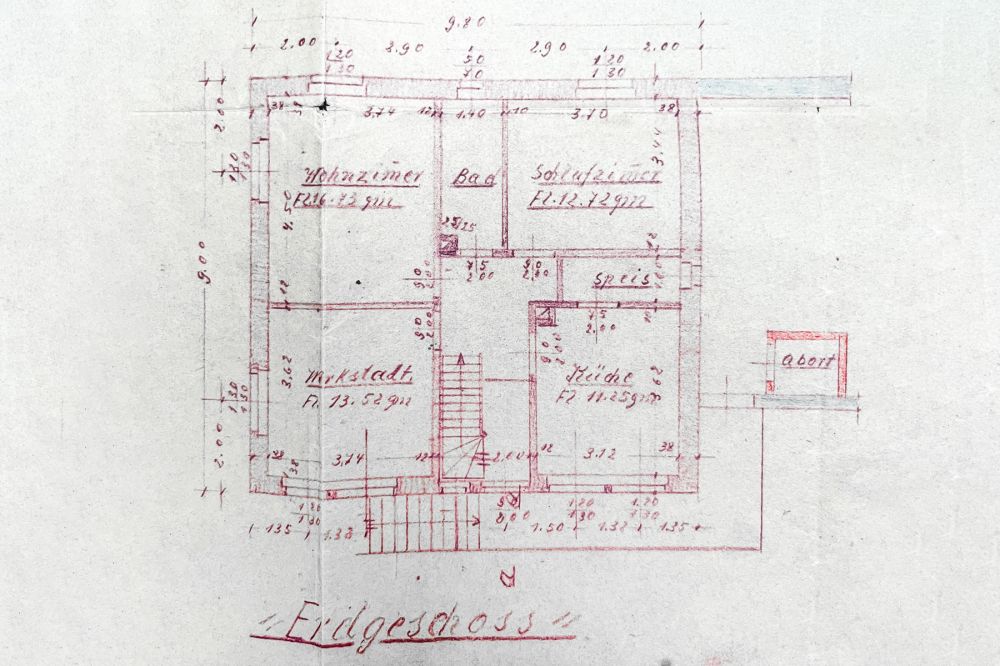 9.80
2.00 2.90 2.90 2.00
1 20 50 1 20
1 30 70 1 30
38 3,74 12 1.40 10 3.70 38
2.00
1 30
1 30
3,44
Wohnzimer Bad Schlafzimer
Fl 16.73 qm Fl. 12.72 qm
4.50
25/25
12
9.00
90 75 90
2 00 2 00 2 00
Speis
12
75
2.00
90 90
2 00 2 00
abort
Werkstadt Küche
Fl. 13.52 qm Fl. 11.25 qm
3,62 3,62
1 30
1 30
2.00
38 3,74 12 2.00 12 3.12 38
38
1 20 90 1 20 1.20
1 30 2 00 1 30 1 30
1 35 1.38 1.50 1.38 1.35
"Erdgeschoss"